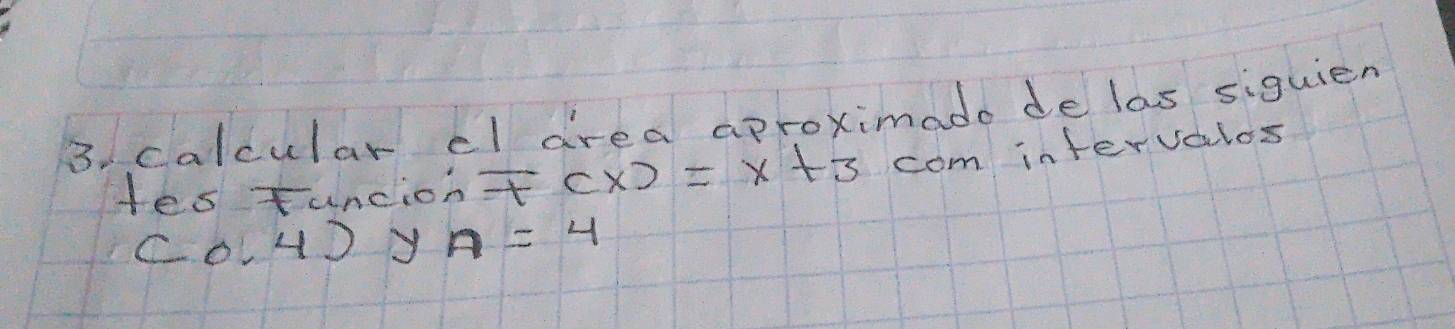 3. calcular el área aproximado de las siguien
tes Función F(x) = x + 3 com intervalos
(0,4) y n = 4